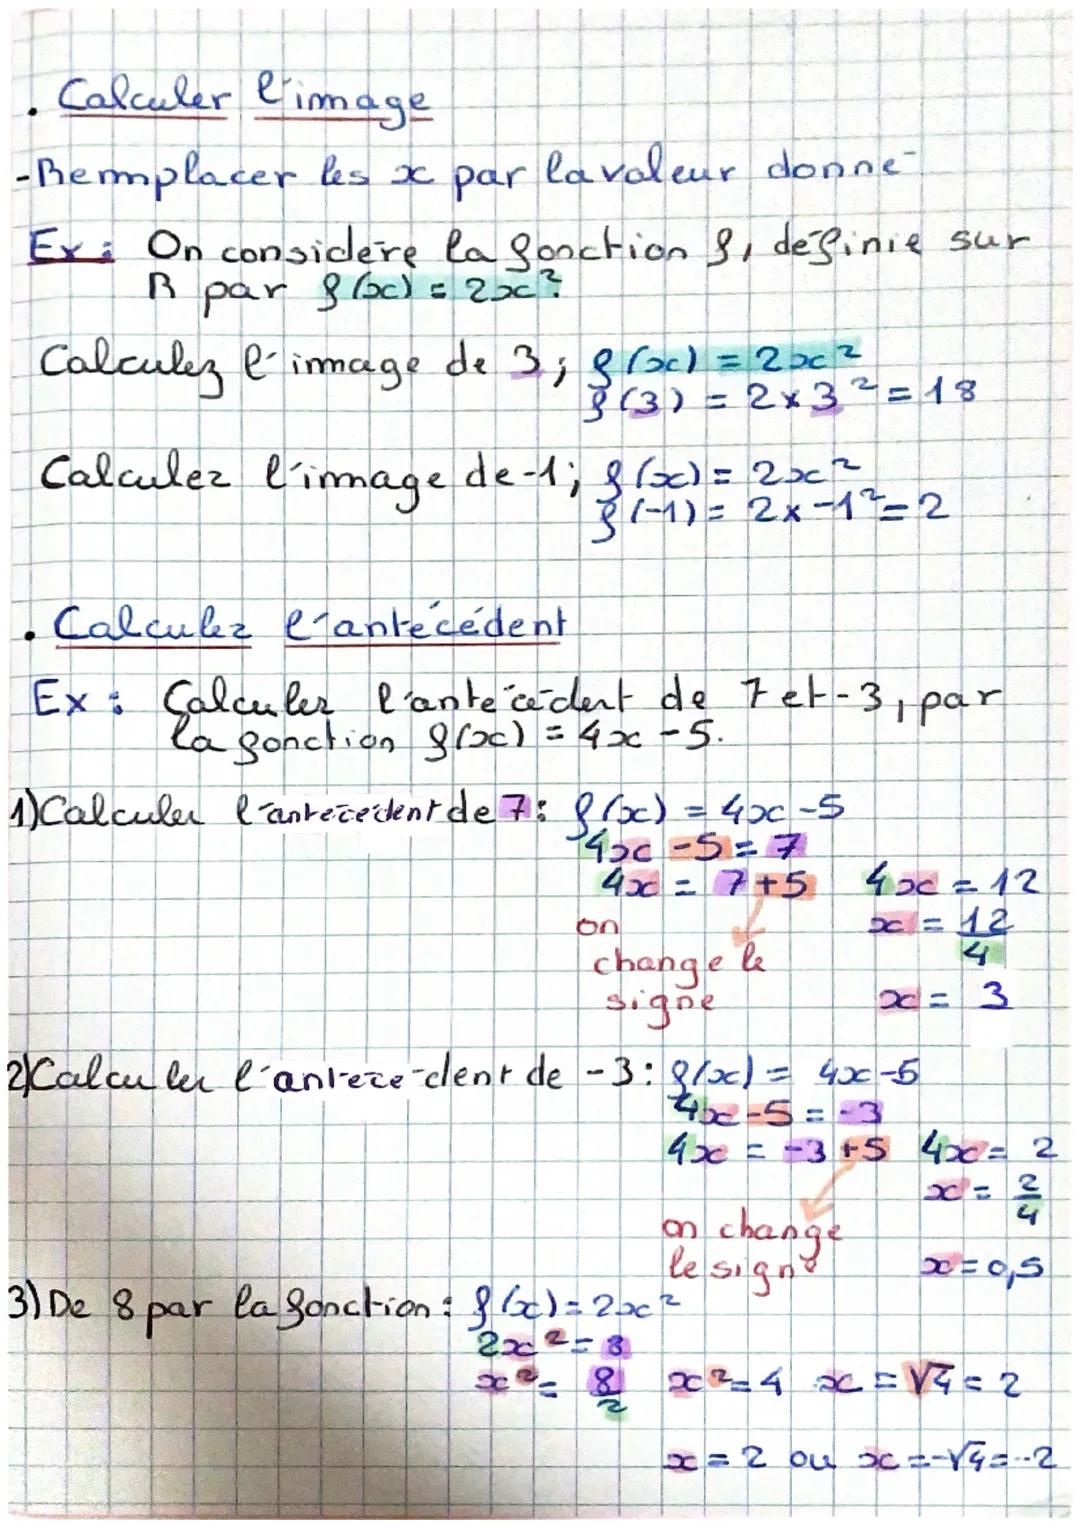 . Calculer l'image
- Remplacer les x par la valeur donné
Ex : On considère la fonction f, définie sur
R par f(x) = 2x².
Calculez l'image de 3 ; f(x) = 2x²
f(3) = 2×3² = 18
Calculez l'image de -1 ; f(x) = 2x²
f(-1) = 2×-1² = 2
. Calculez l'antécédent
Ex : Calculer l'antécédent de 7 et -3, par
la fonction f(x) = 4x - 5.
1) Calculer l'antécédent de 7 : f(x) = 4x - 5
4x - 5 = 7
4x = 7 + 5 4x = 12
on x = 12/4
change le
signe x = 3
2) Calculer l'antécédent de -3 : f(x) = 4x - 5
4x - 5 = -3
4x = -3 + 5 4x = 2
x = 2/4
on change
le signe x = 0,5
3) De 8 par la fonction : f(x) = 2x²
2x² = 8
x² = 8/2 x² = 4 x = √4 = 2
x = 2 ou x = -√4 = -2